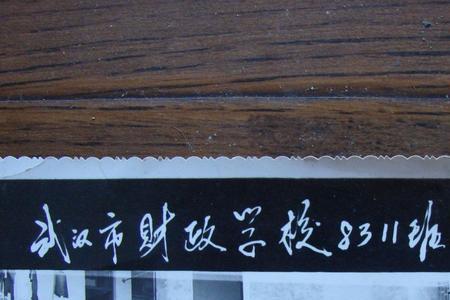 武汉市财政学校8311班